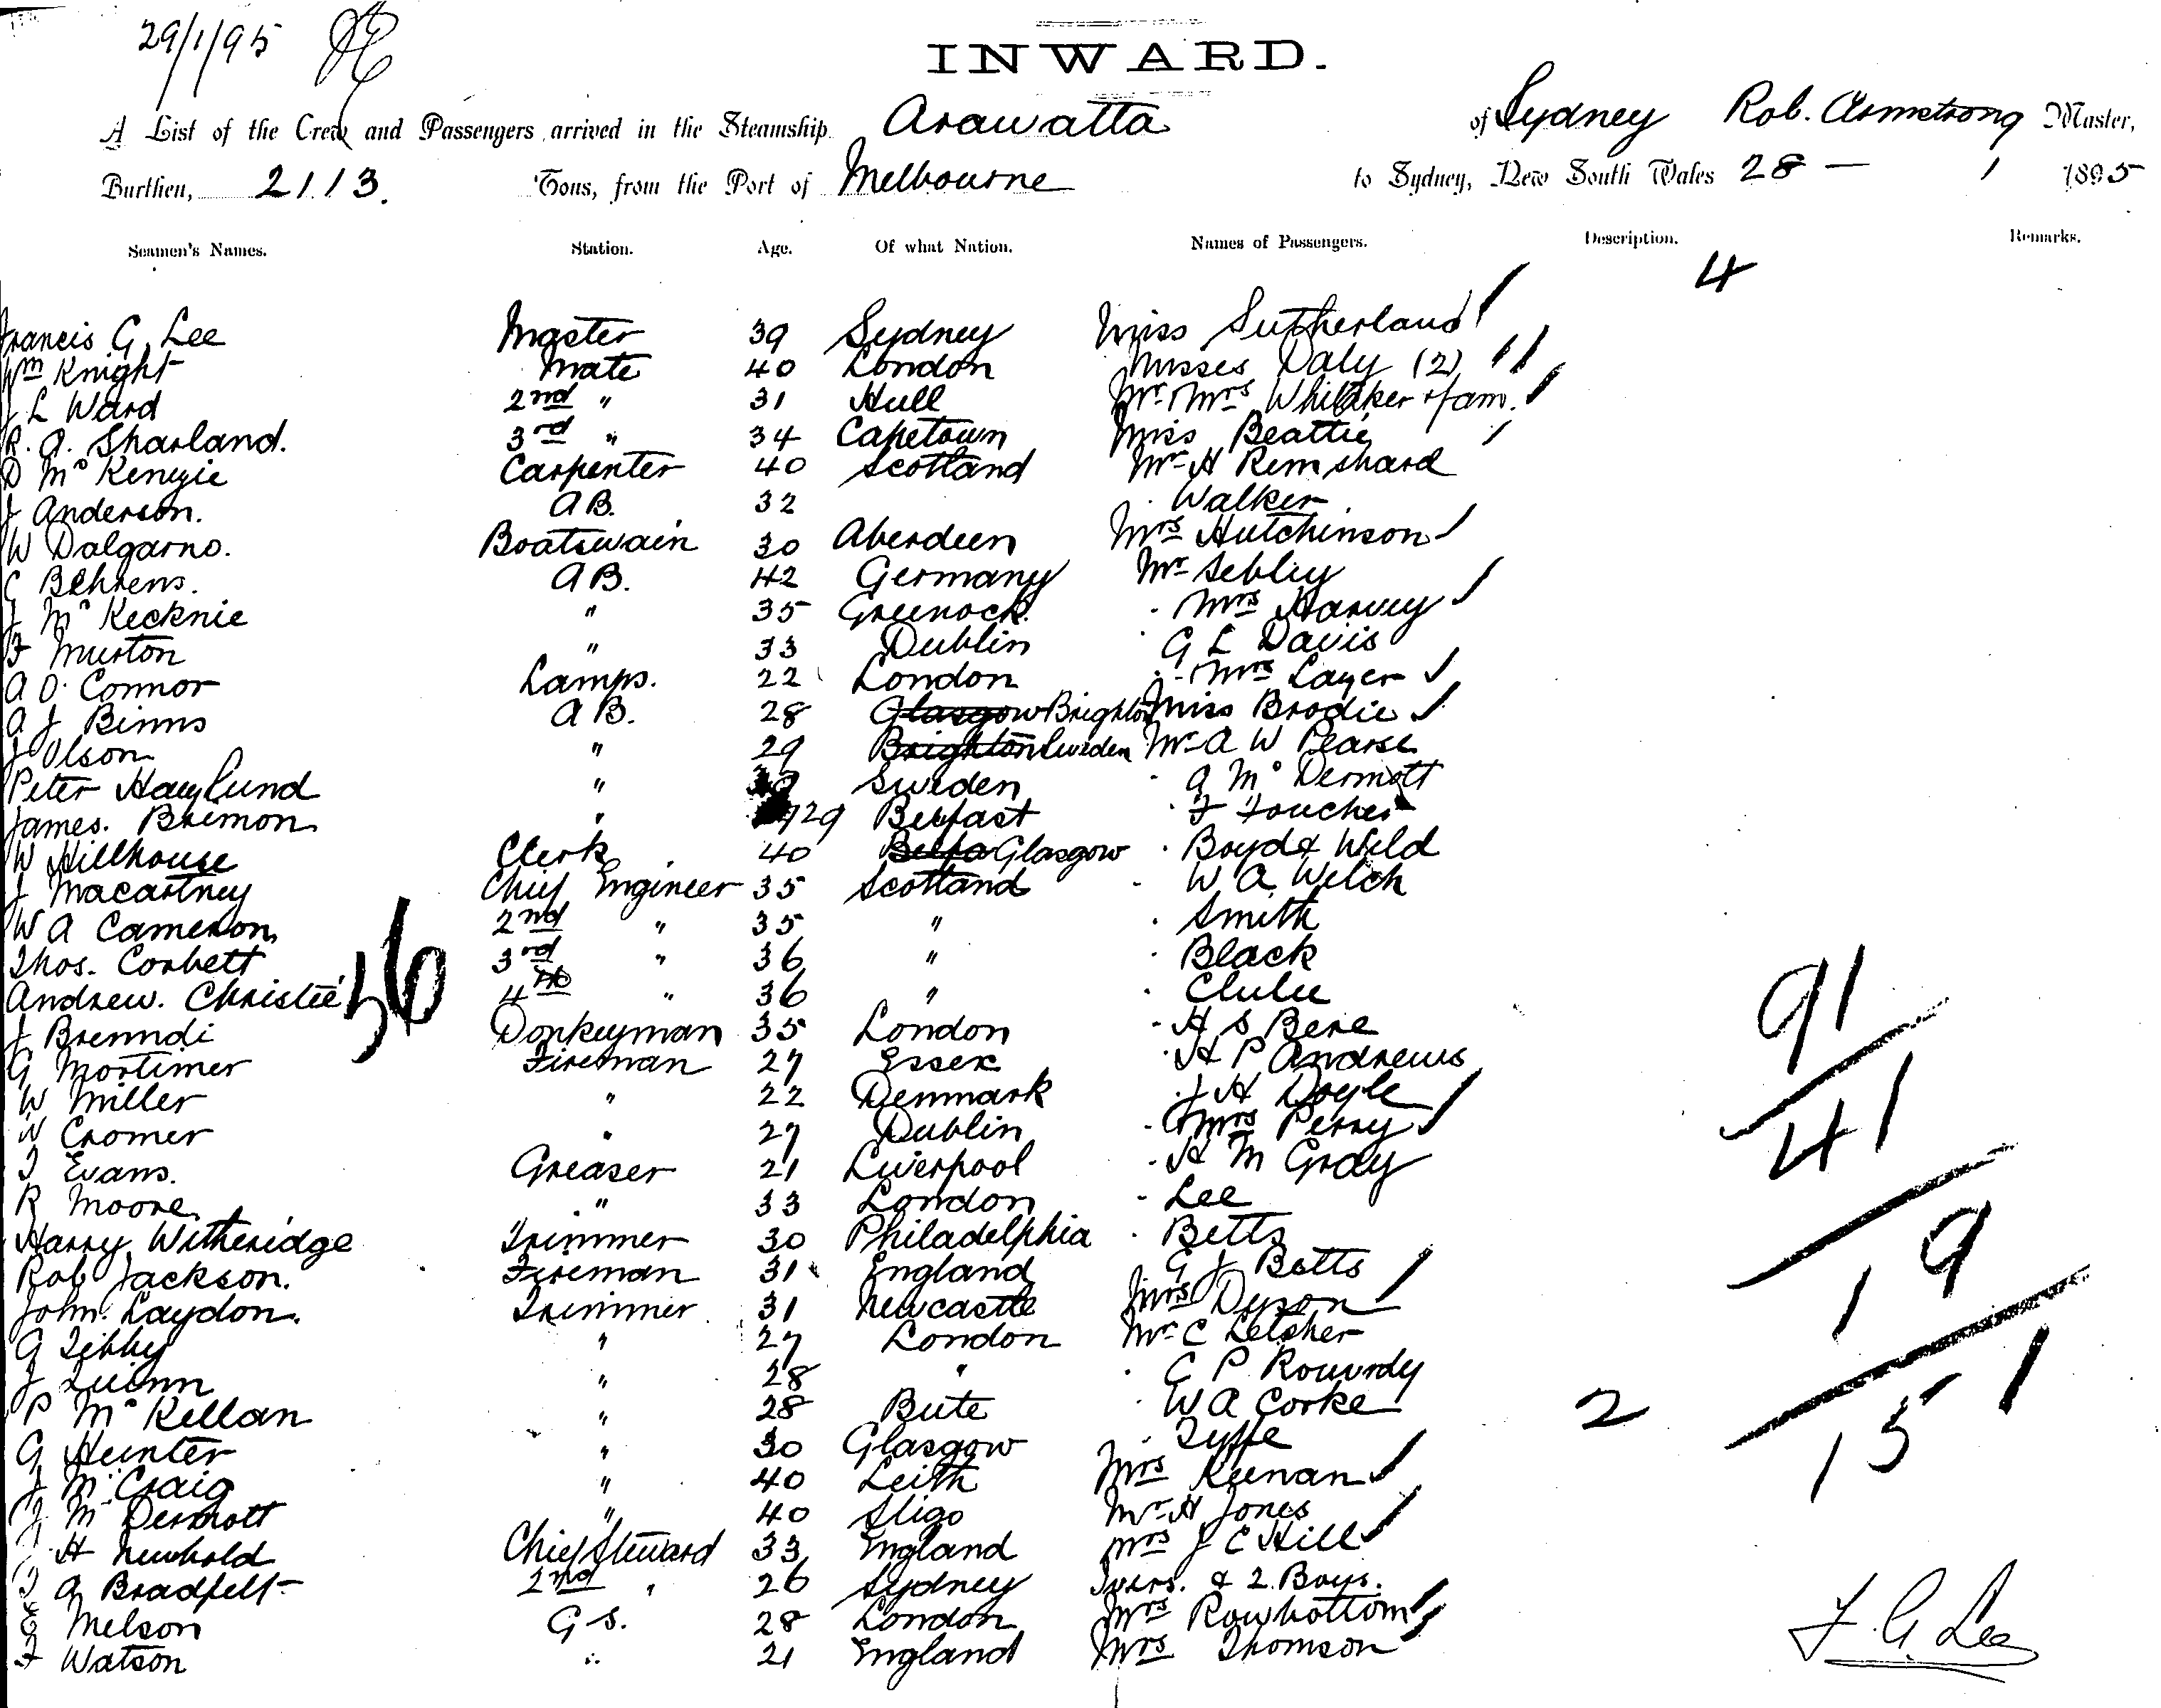 29/1/95
INWARD.
A List of the Crew and Passengers arrived in the Steamship Arawatta of Sydney Rob. Armstrong Master,
Burthen, 2113. Tons, from the Port of Melbourne to Sydney, New South Wales 28 — 1 1895
Seamen's Names. Station. Age. Of what Nation. Names of Passengers. Description. Remarks.
4
Francis G. Lee Master 39 Sydney Miss Sutherland
Wm Knight Mate 40 London Misses Daly (2)
J L Ward 2nd " 31 Hull Mr & Mrs Whittaker & fam.
R. A. Sharland. 3rd " 34 Capetown Miss Beattie
D McKenzie Carpenter 40 Scotland Mr H Remshard
J Anderson. AB. 32 Walker
W Dalgarno. Boatswain 30 Aberdeen Mrs Hutchinson
C Behrens. AB. 42 Germany Mr Sebley
J McKecknie " 35 Greenock. Mrs Harvey
F Murton " 33 Dublin G L Davis
A O'Connor Lamps. 22 London Mrs Layer
A J Binns AB. 28 Glasgow Brighton Miss Brodie
J Olson " 29 Brighton Sweden Mr A W Pearse
Peter Haylund " Sweden A McDermott
James. Bremon " 29 Belfast F Foucher
W Hillhouse Clerk 40 Belfa Glasgow Boyd & Weld
J Macartney Chief Engineer 35 Scotland W A Welch
W A Cameron 2nd " 35 " Smith
Thos. Corbett 3rd " 36 " Black
Andrew. Christie 4th " 36 " Clulee
56
J Brenndi Donkeyman 35 London H S Bere
G Mortimer Fireman 27 Essex H P Andrews
W Miller " 22 Denmark J H Doyle
W Cromer " 27 Dublin Mrs Perry
T Evans. Greaser 21 Liverpool H M Gray
R Moore " 33 London Lee
Harry Witheridge Trimmer 30 Philadelphia Betts
Rob Jackson. Fireman 31 England G J Betts
John. Laydon. Trimmer 31 Newcastle Mrs Dyson
G Tibby " 27 London Mr C Letcher
J Quinn " 28 " C P Rouvrdy
P McKellan " 28 Bute W A Corke
G Hunter " 30 Glasgow Tyffe
J McCraig " 40 Leith Mrs Keenan
J McDermott " 40 Sligo Mr H Jones
H Newbold Chief Steward 33 England Mrs J C Hill
A Bradfelt 2nd " 26 Sydney Ivers. & 2 Boys.
Melson G S. 28 London Mrs Rowbottom
F Watson " 21 England Mrs Thomson
91
41
19
2 151
F. G Lee